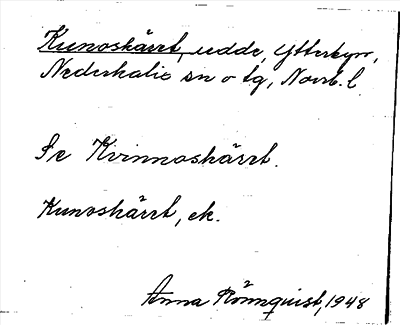 Kunoskärrt, udde, Ytterbyn,
Nederkalix sn o tg, Norrb. l.
Se Kvinnoskärrt.
Kunoskärrt, ek.
Anna Rönnquist, 1948